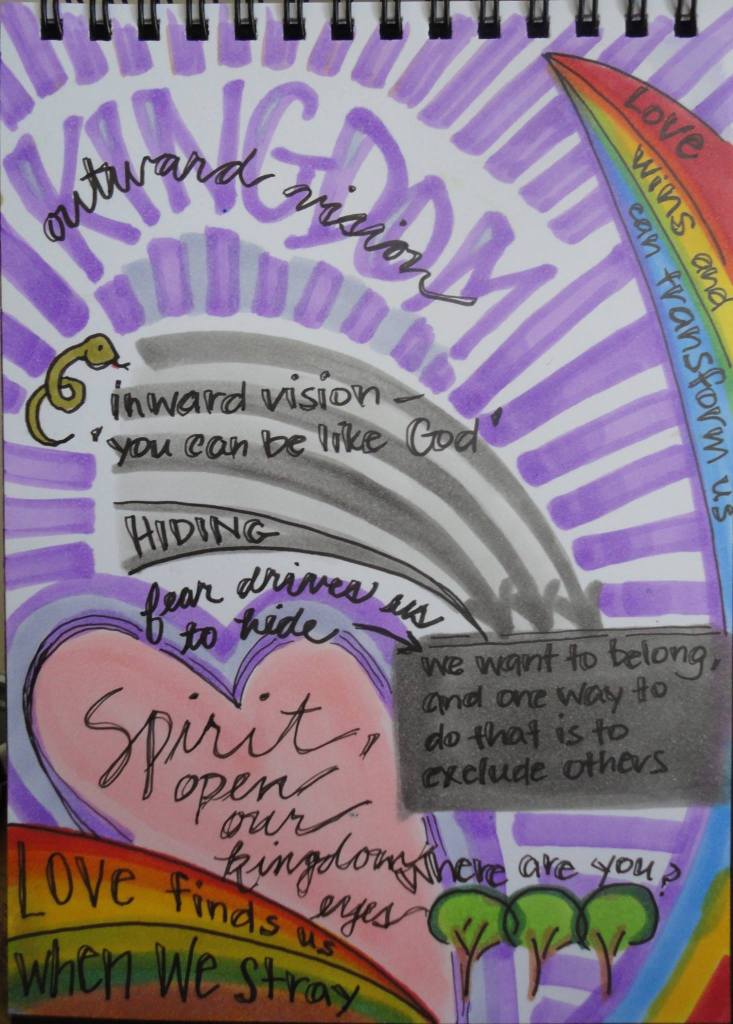 KINGDOM
outward vision
Love
wins and
can transform us
inward vision –
'you can be like God'
HIDING
fear drives us
to hide
we want to belong,
and one way to
do that is to
exclude others
Spirit,
open
our
kingdom
eyes
Where are you?
LOVE finds us
when we stray